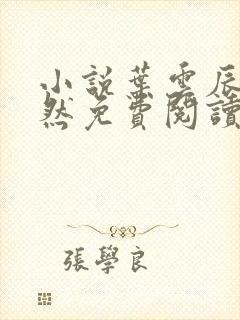 小說葉雲辰
然免費閱讀
張學良